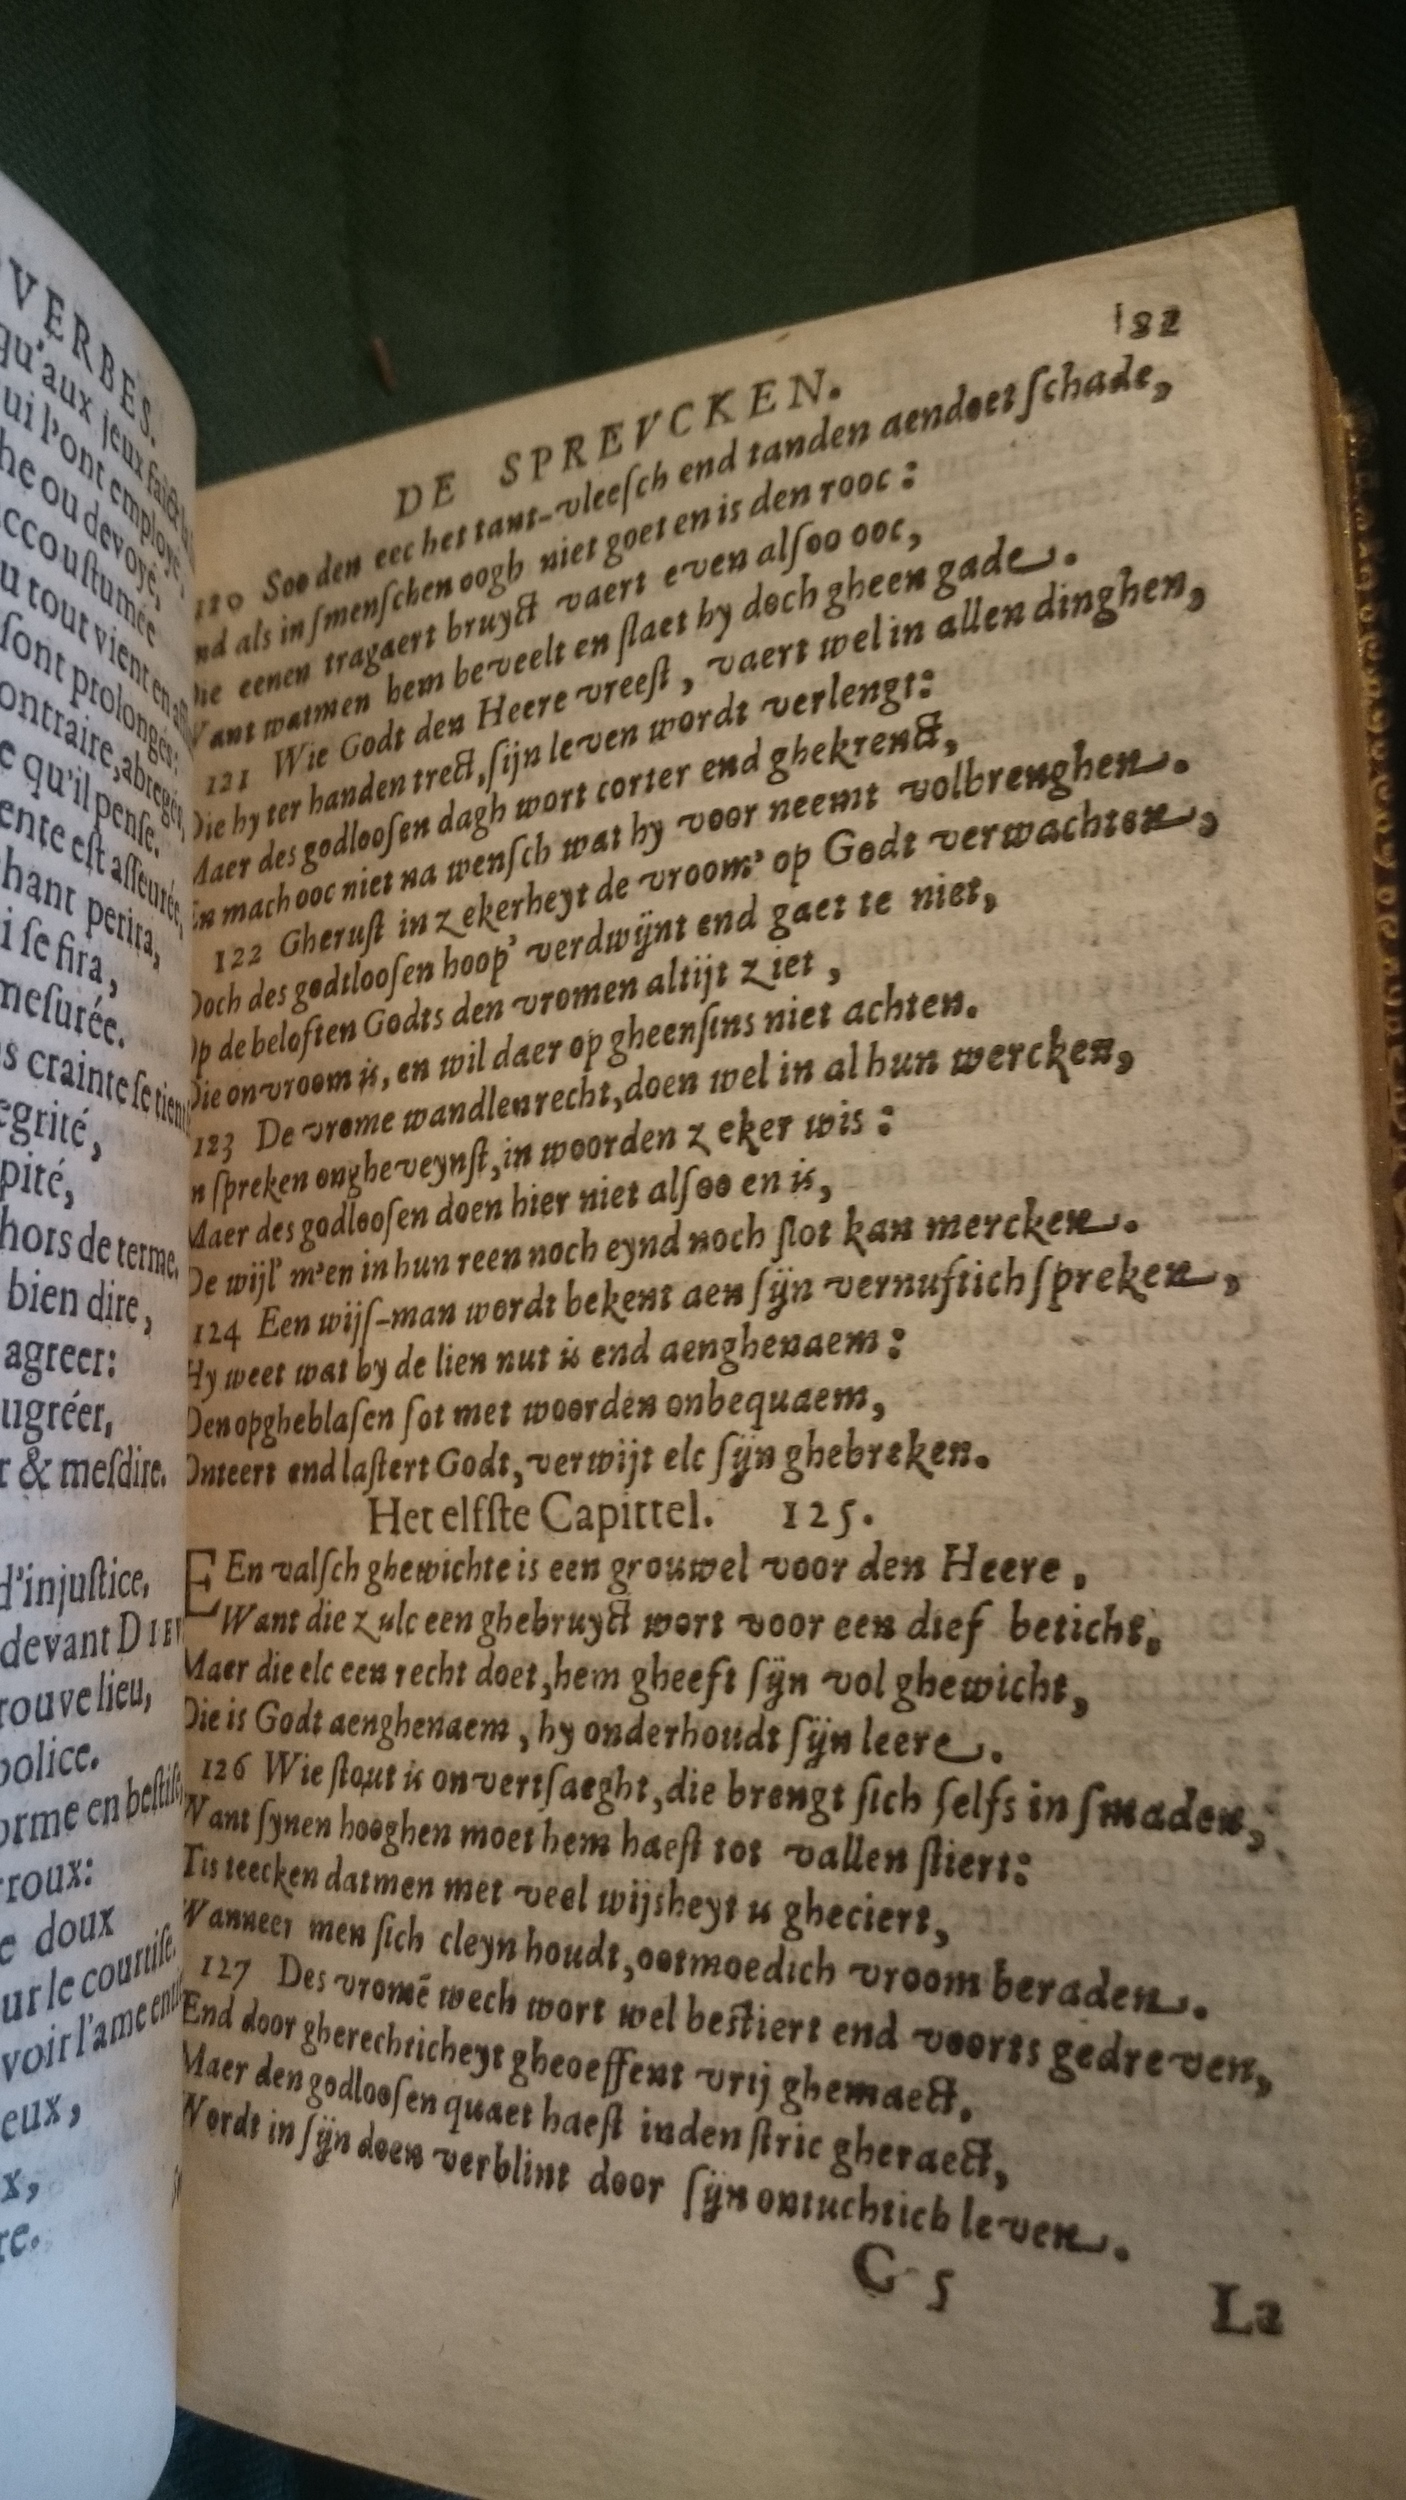 VERBES.
qu'aux jeux
qui l'ont employé,
he ou devoyé,
accouſtumée
u tout vient en
ſont prolongés:
ontraire, abregés,
e qu'il penſe.
ente eſt aſſeurée,
hant perira,
i ſe fira,
meſurée.
s crainte ſe tient
egrité,
pité,
hors de terme.
bien dire,
agreer:
ugréer,
r & meſdire.
d'injuſtice,
devant DIEV
rouve lieu,
police.
orme en
rroux:
e doux
ur le courtiſe.
voir l'ame
eux,
x,
re.
182
DE SPREVCKEN.
120 Soo den eec het tant-vleeſch end tanden aendoet ſchade,
nd als in ſmenſchen oogh niet goet en is den rooc:
Die eenen tragaert bruyct vaert even alſoo ooc,
Want watmen hem beveelt en ſlaet hy doch gheen gade.
121 Wie Godt den Heere vreeſt, vaert wel in allen dinghen,
Die hy ter handen trect, ſijn leven wordt verlengt:
Maer des godlooſen dagh wort corter end ghekrenct,
En mach ooc niet na wenſch wat hy voor neemt volbrenghen.
122 Gheruſt in zekerheyt de vroom' op Godt verwachten,
Doch des godtlooſen hoop' verdwijnt end gaet te niet,
Op de beloften Godts den vromen altijt ziet,
Die onvroom is, en wil daer op gheenſins niet achten.
123 De vrome wandlen recht, doen wel in al hun wercken,
n ſpreken ongheveynſt, in woorden zeker wis:
Maer des godlooſen doen hier niet alſoo en is,
De wijl' m'en in hun reen noch eynd noch ſlot kan mercken.
124 Een wijſ-man wordt bekent aen ſijn vernuftich ſpreken,
Hy weet wat by de lien nut is end aenghenaem:
Den opgheblaſen ſot met woorden onbequaem,
Onteert end laſtert Godt, verwijt elc ſijn ghebreken.
Het elfſte Capittel. 125.
EEn valſch ghewichte is een grouwel voor den Heere,
Want die zulc een ghebruyct wort voor een dief beticht,
Maer die elc een recht doet, hem gheeft ſijn vol ghewicht,
Die is Godt aenghenaem, hy onderhoudt ſijn leere.
126 Wie ſtout is onvertſaeght, die brengt ſich ſelfs in ſmaden,
Want ſynen hooghen moet hem haeſt tot vallen ſtiert:
Tis teecken datmen met veel wijsheyt is gheciert,
Wanneer men ſich cleyn houdt, ootmoedich vroom beraden.
127 Des vromē wech wort wel beſtiert end voorts gedreven,
End door gherechticheyt gheoeffent vrij ghemaect.
Maer den godlooſen quaet haeſt inden ſtric gheraect,
Wordt in ſijn doen verblint door ſijn ontuchtich leven.
G 5
La